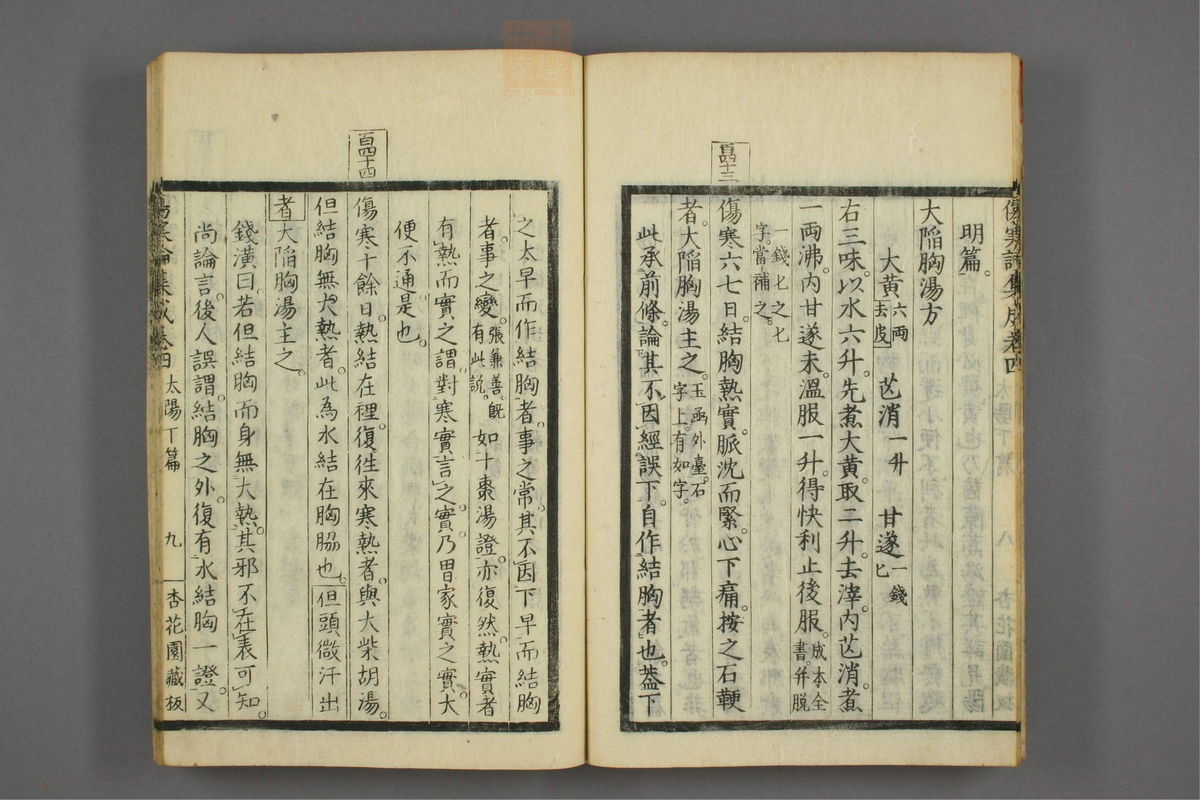 傷寒論集成卷四
明篇。
大陷胸湯方
大黃六兩去皮 芒消一升 甘遂一錢匕
右三味。以水六升。先煮大黃。取二升。去滓。內芒消。煮
一兩沸。內甘遂末。溫服一升。得快利止後服。成本全書。併脫
一錢匕之匕字。當補之。
百四十三
傷寒六七日。結胸熱實。脈沈而緊。心下痛。按之石鞕
者。大陷胸湯主之。玉函外臺。石字上。有如字。
此承前條。論其不因經誤下。自作結胸者也。蓋下
之太早而作結胸者。事之常。其不因下早而結胸
者。事之變。張兼善既有此說。如十棗湯證。亦復然。熱實者
有熱而實之謂。對寒實言之。實乃胃家實之實。大
便不通是也。
百四十四
傷寒十餘日。熱結在裡。復往來寒熱者。與大柴胡湯。
但結胸無大熱者。此為水結在胸脇也。但頭微汗出
者大陷胸湯主之。
錢潢曰。若但結胸而身無大熱。其邪不在表可知。
尚論言。後人誤謂結胸之外。復有水結胸一證。又
傷寒論集成卷四 太陽下篇 九 杏花園藏板